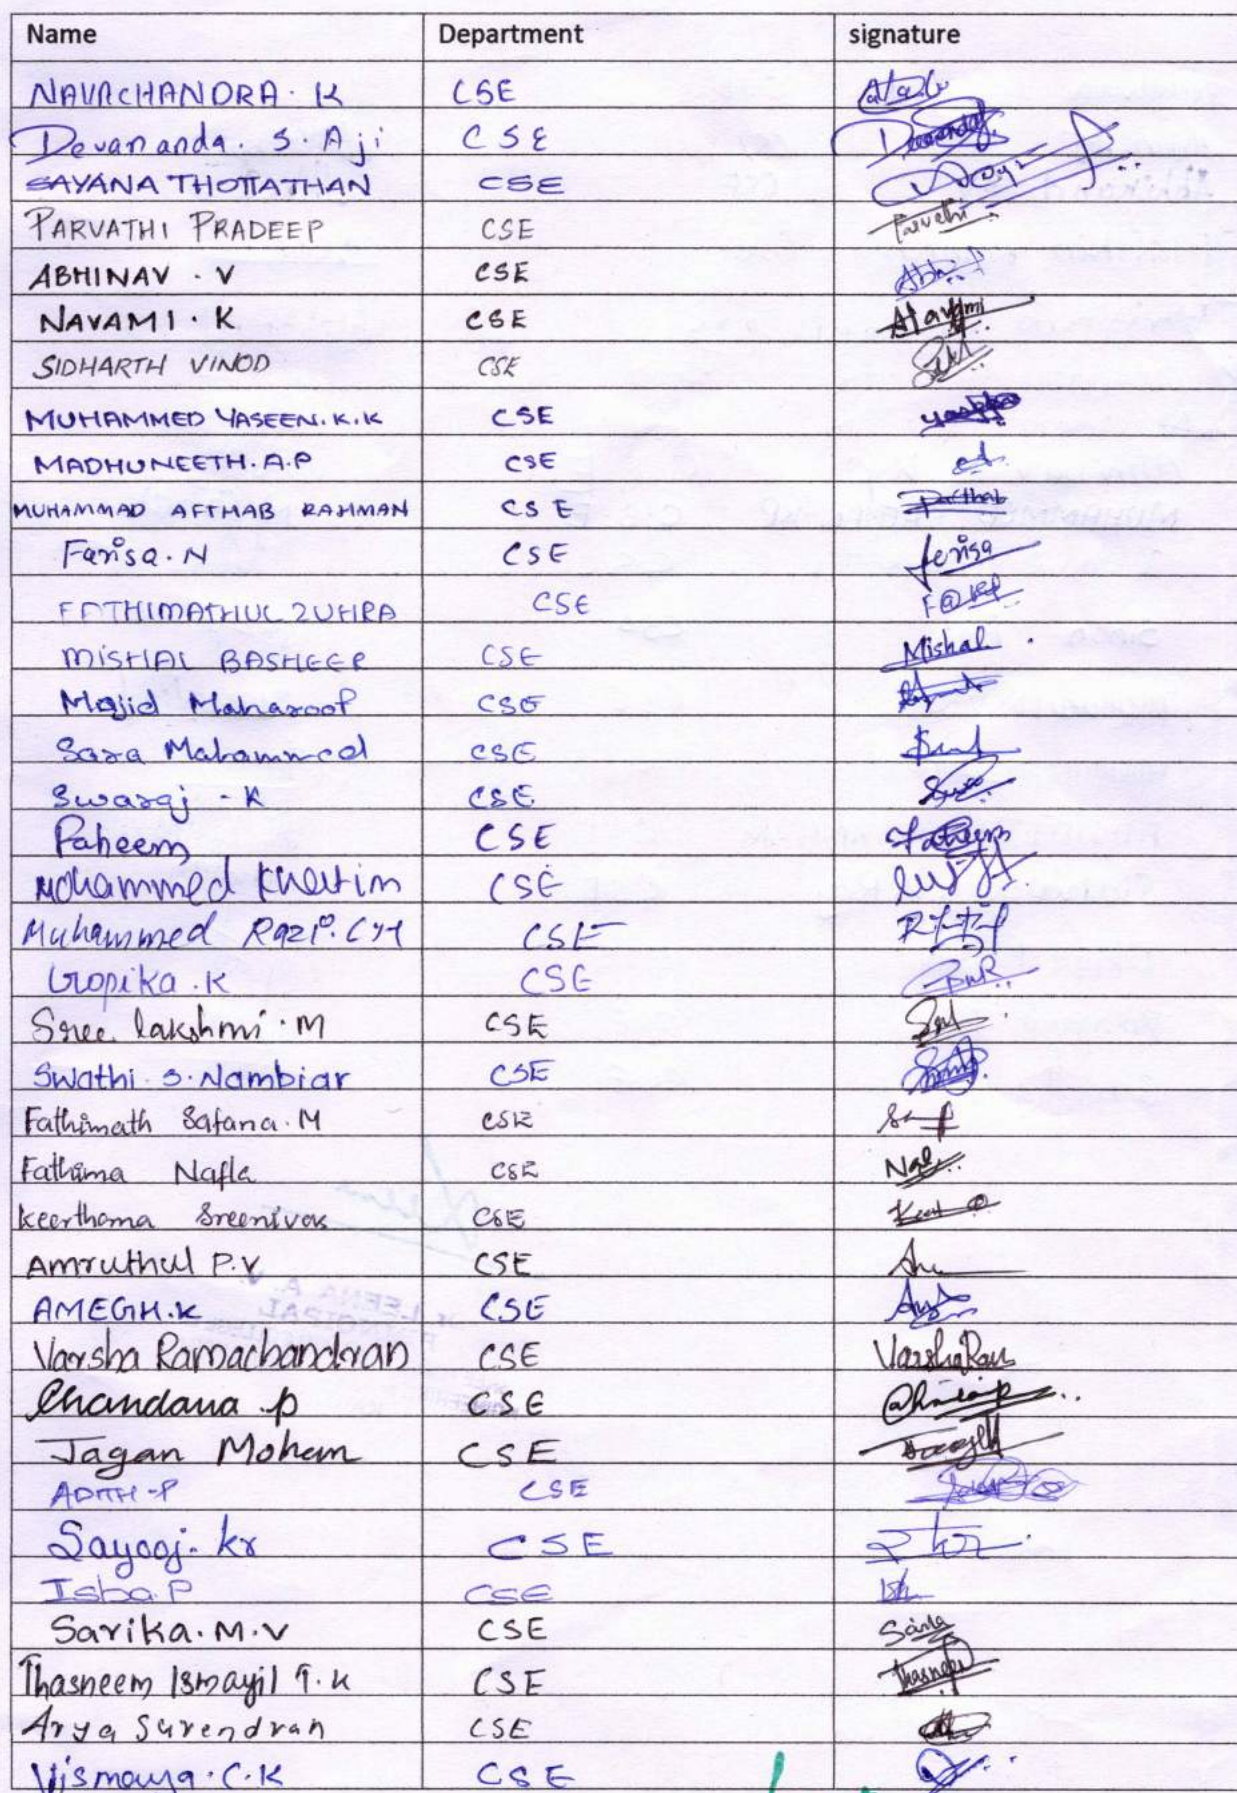 Name Department signature
NAVACHANDRA. K CSE
Devananda. S. Aji CSE
SAYANA THOTTATHAN CSE
PARVATHI PRADEEP CSE Parvathi
ABHINAV . V CSE
NAVAMI . K CSE Navami
SIDHARTH VINOD CSE
MUHAMMED YASEEN. K. K CSE
MADHUNEETH. A. P CSE
MUHAMMAD AFTHAB RAHMAN CSE
Farisa. N CSE ferisa
FATHIMATHUL ZUHRA CSE
MISHAL BASHEER CSE Mishal
Majid Maharoof CSE
Sara Mahammed CSE
Swaraj . K CSE
Faheem CSE Faheem
Mohammed CSE
Muhammed Razi. CH CSE
Gopika . K CSE
Sree lakshmi . M CSE
Swathi. S. Nambiar CSE
Fathimath Safana. M CSE
Fathima Nafla CSE
Keerthana Sreenivas CSE
Amruthul P.V CSE
AMEGH. K CSE
Varsha Ramachandran CSE VarshaRam
Chandana . p CSE
Jagan Mohan CSE
ADITH . P CSE
Sayooj. kr CSE
Isba. P CSE
Sarika. M. V CSE
Thasneem Ismayil T. K CSE
Arya Surendran CSE
Vismaya . C. K CSE